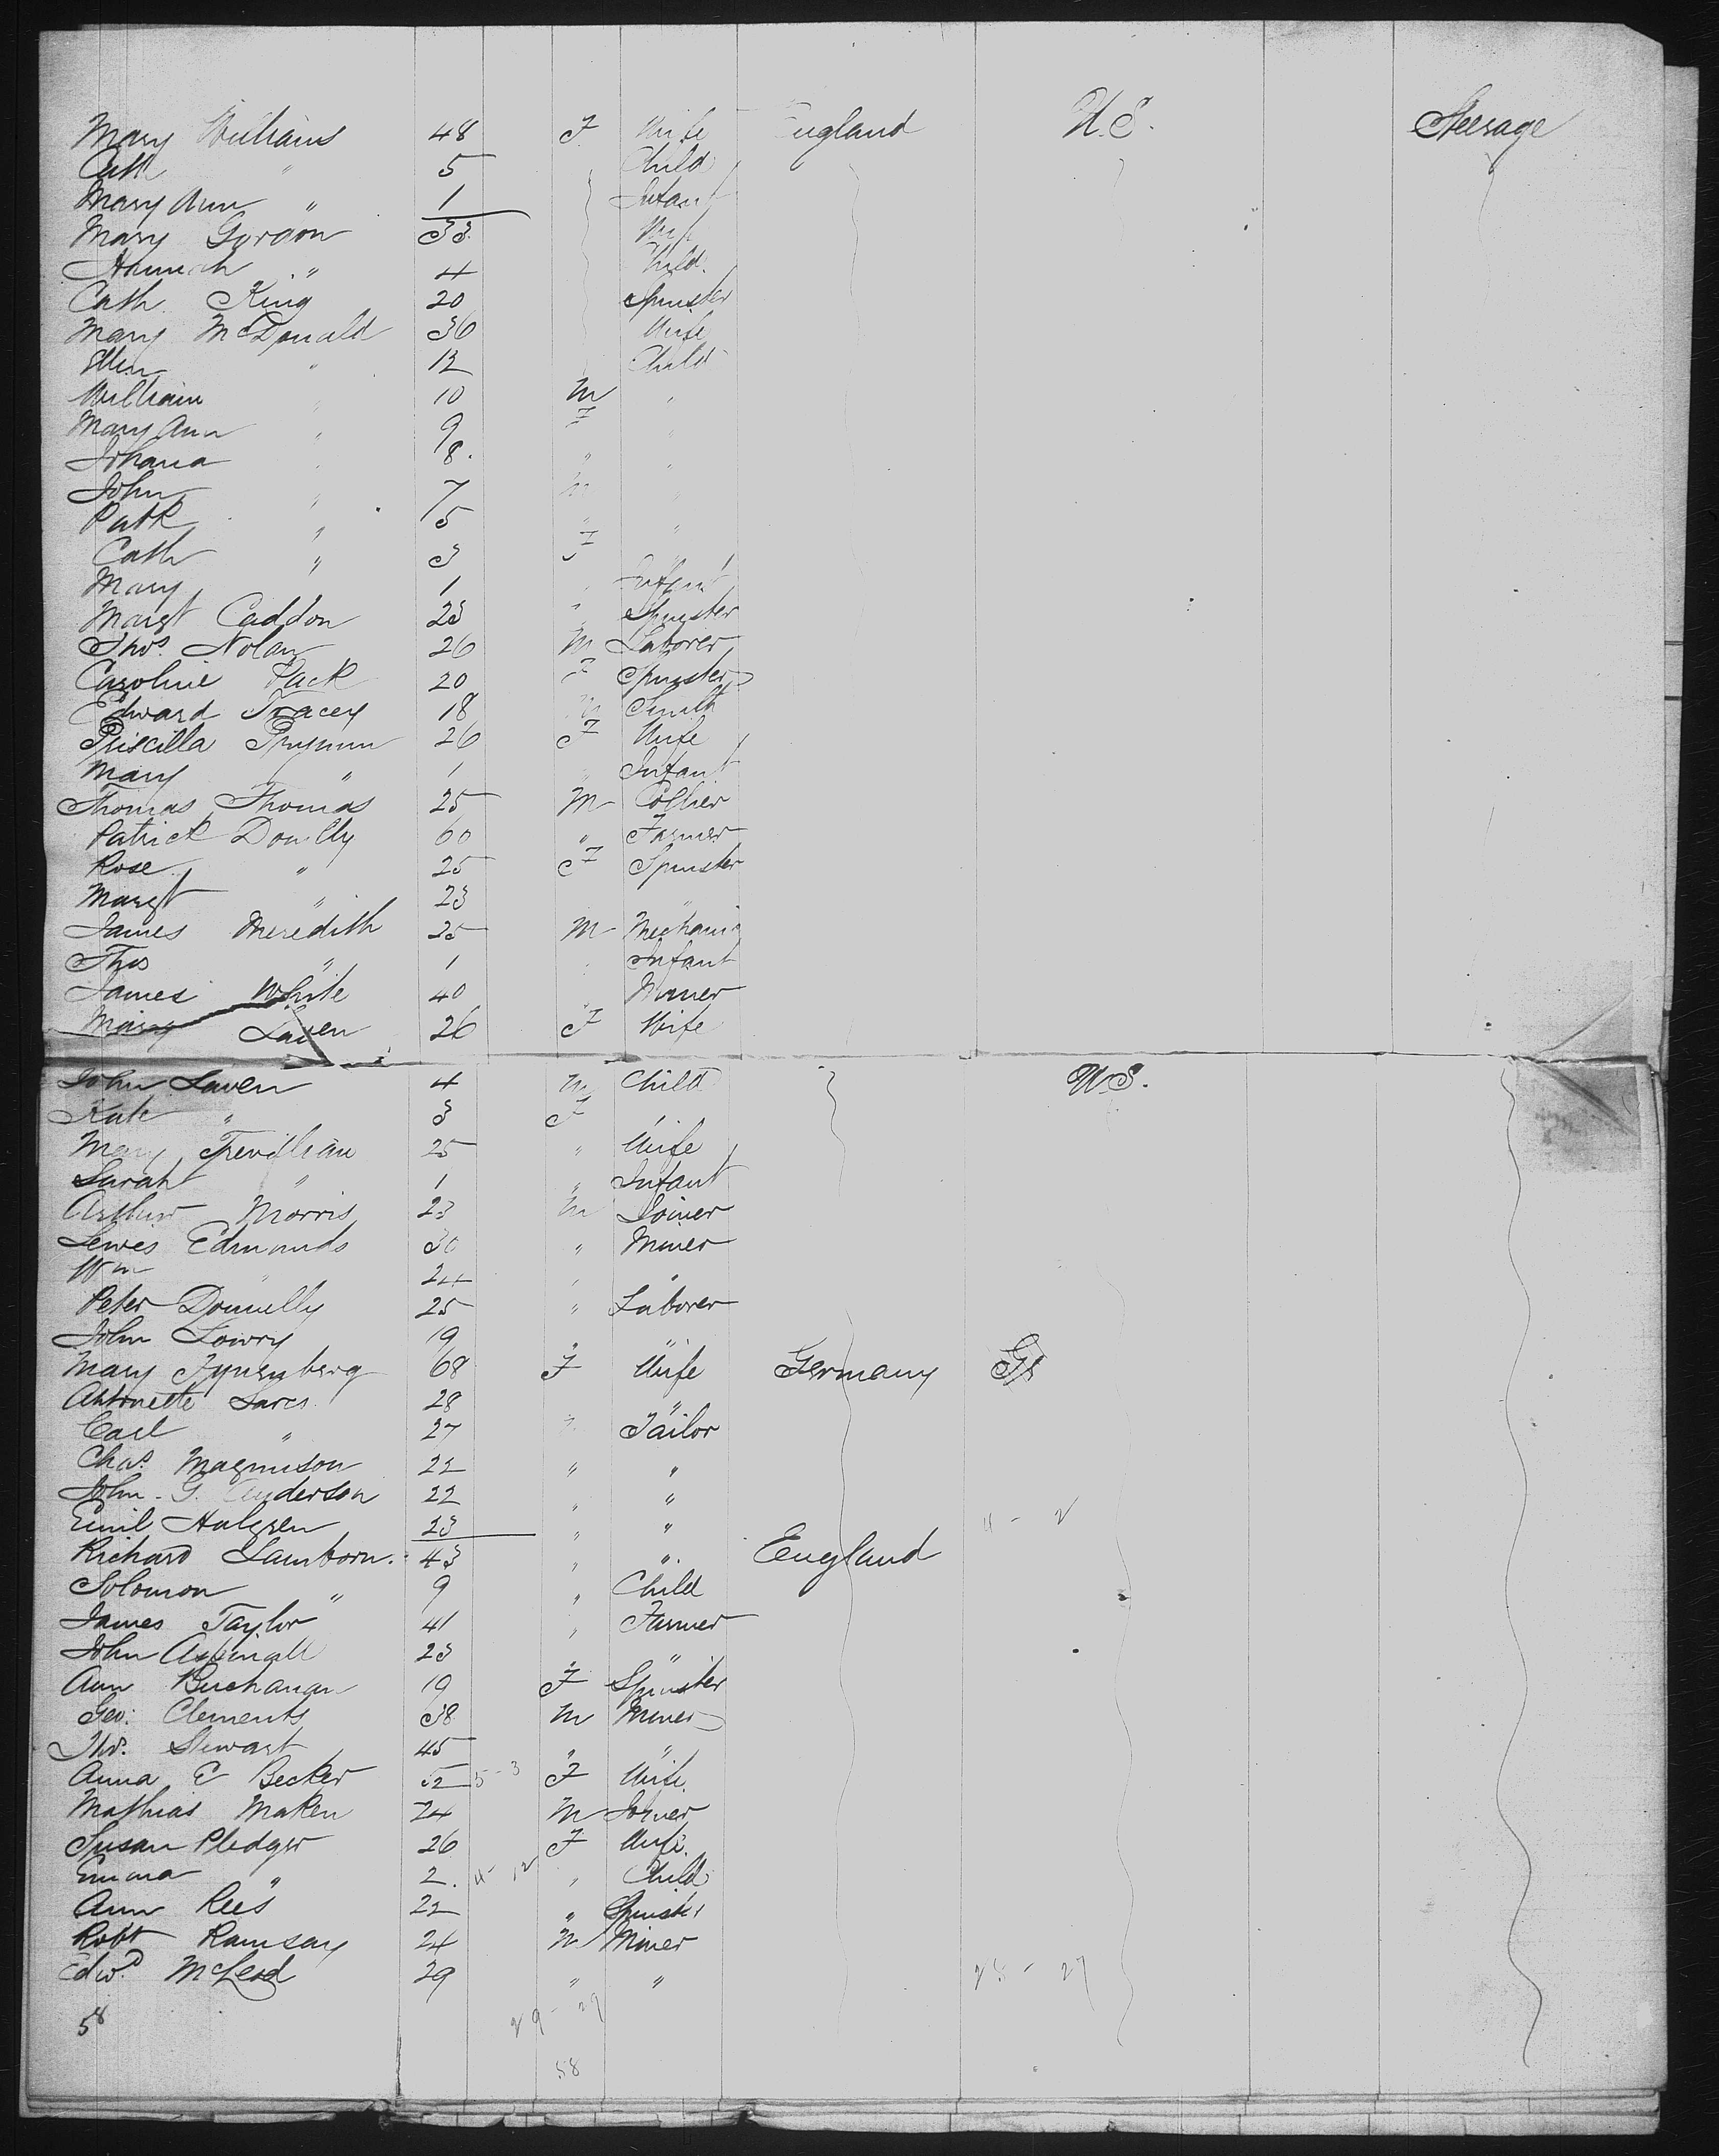 Mary Williams 48 F Wife England U.S. Steerage
Cath " 5 Child
Mary Ann " 1 Infant
Mary Gordon 33 Wife
Hannah " 4 Child
Cath King 20 Spinster
Mary McDonald 36 Wife
Ellen " 12 Child
William " 10 M "
Mary Ann " 9 F "
Johana " 8 " "
John " 7 M "
Patk " 5 " "
Cath " 3 F "
Mary 1 " Infant
Margt Caddon 23 " Spinster
Thos. Nolan 26 M Laborer
Caroline Pack 20 F Spinster
Edward Tracey 18 M Smith
Priscilla 26 F Wife
Mary " 1 " Infant
Thomas Thomas 25 M Collier
Patrick Donlly 60 " Farmer
Rose " 25 F Spinster
Margt " 23 "
James Meredith 25 M Mechanic
Thos " 1 Infant
James White 40 " Miner
Mary Laven 26 F Wife
John Laven 4 M Child U.S.
Kate " 3 F "
Mary Trevillian 25 " Wife
Sarah " 1 " Infant
Arthur Morris 23 M Joiner
Lewis Edmunds 30 " Miner
Wm " 24 " "
Peter Donnelly 25 " Laborer
John Lowry 19 " "
Mary 68 F Wife Germany Gr
Antonette Lares 28 "
Carl " 27 " Tailor
Chas. Magnuson 22 " "
John G. Anderson 22 " "
Emil Halgren 23 " " 4 - 2
Richard Lamborn. 43 " ". England
Solomon " 9 " Child
James Taylor 41 " Farmer
John Aspinall 23 " "
Ann Buchanan 19 F Spinster
Geo. Clements 38 M Miner
Thos. Stewart 45 " "
Anna E Becker 52 5 - 3 F Wife
Mathias Maken 24 M Joiner
Susan Pledger 26 F Wife
Emma " 2. 4 - 12 " Child
Ann Rees 22 " Spinster
Robt Ramsay 24 M Miner
Edwd. McLeod 29 " " 25 - 27
58 29 - 29
58